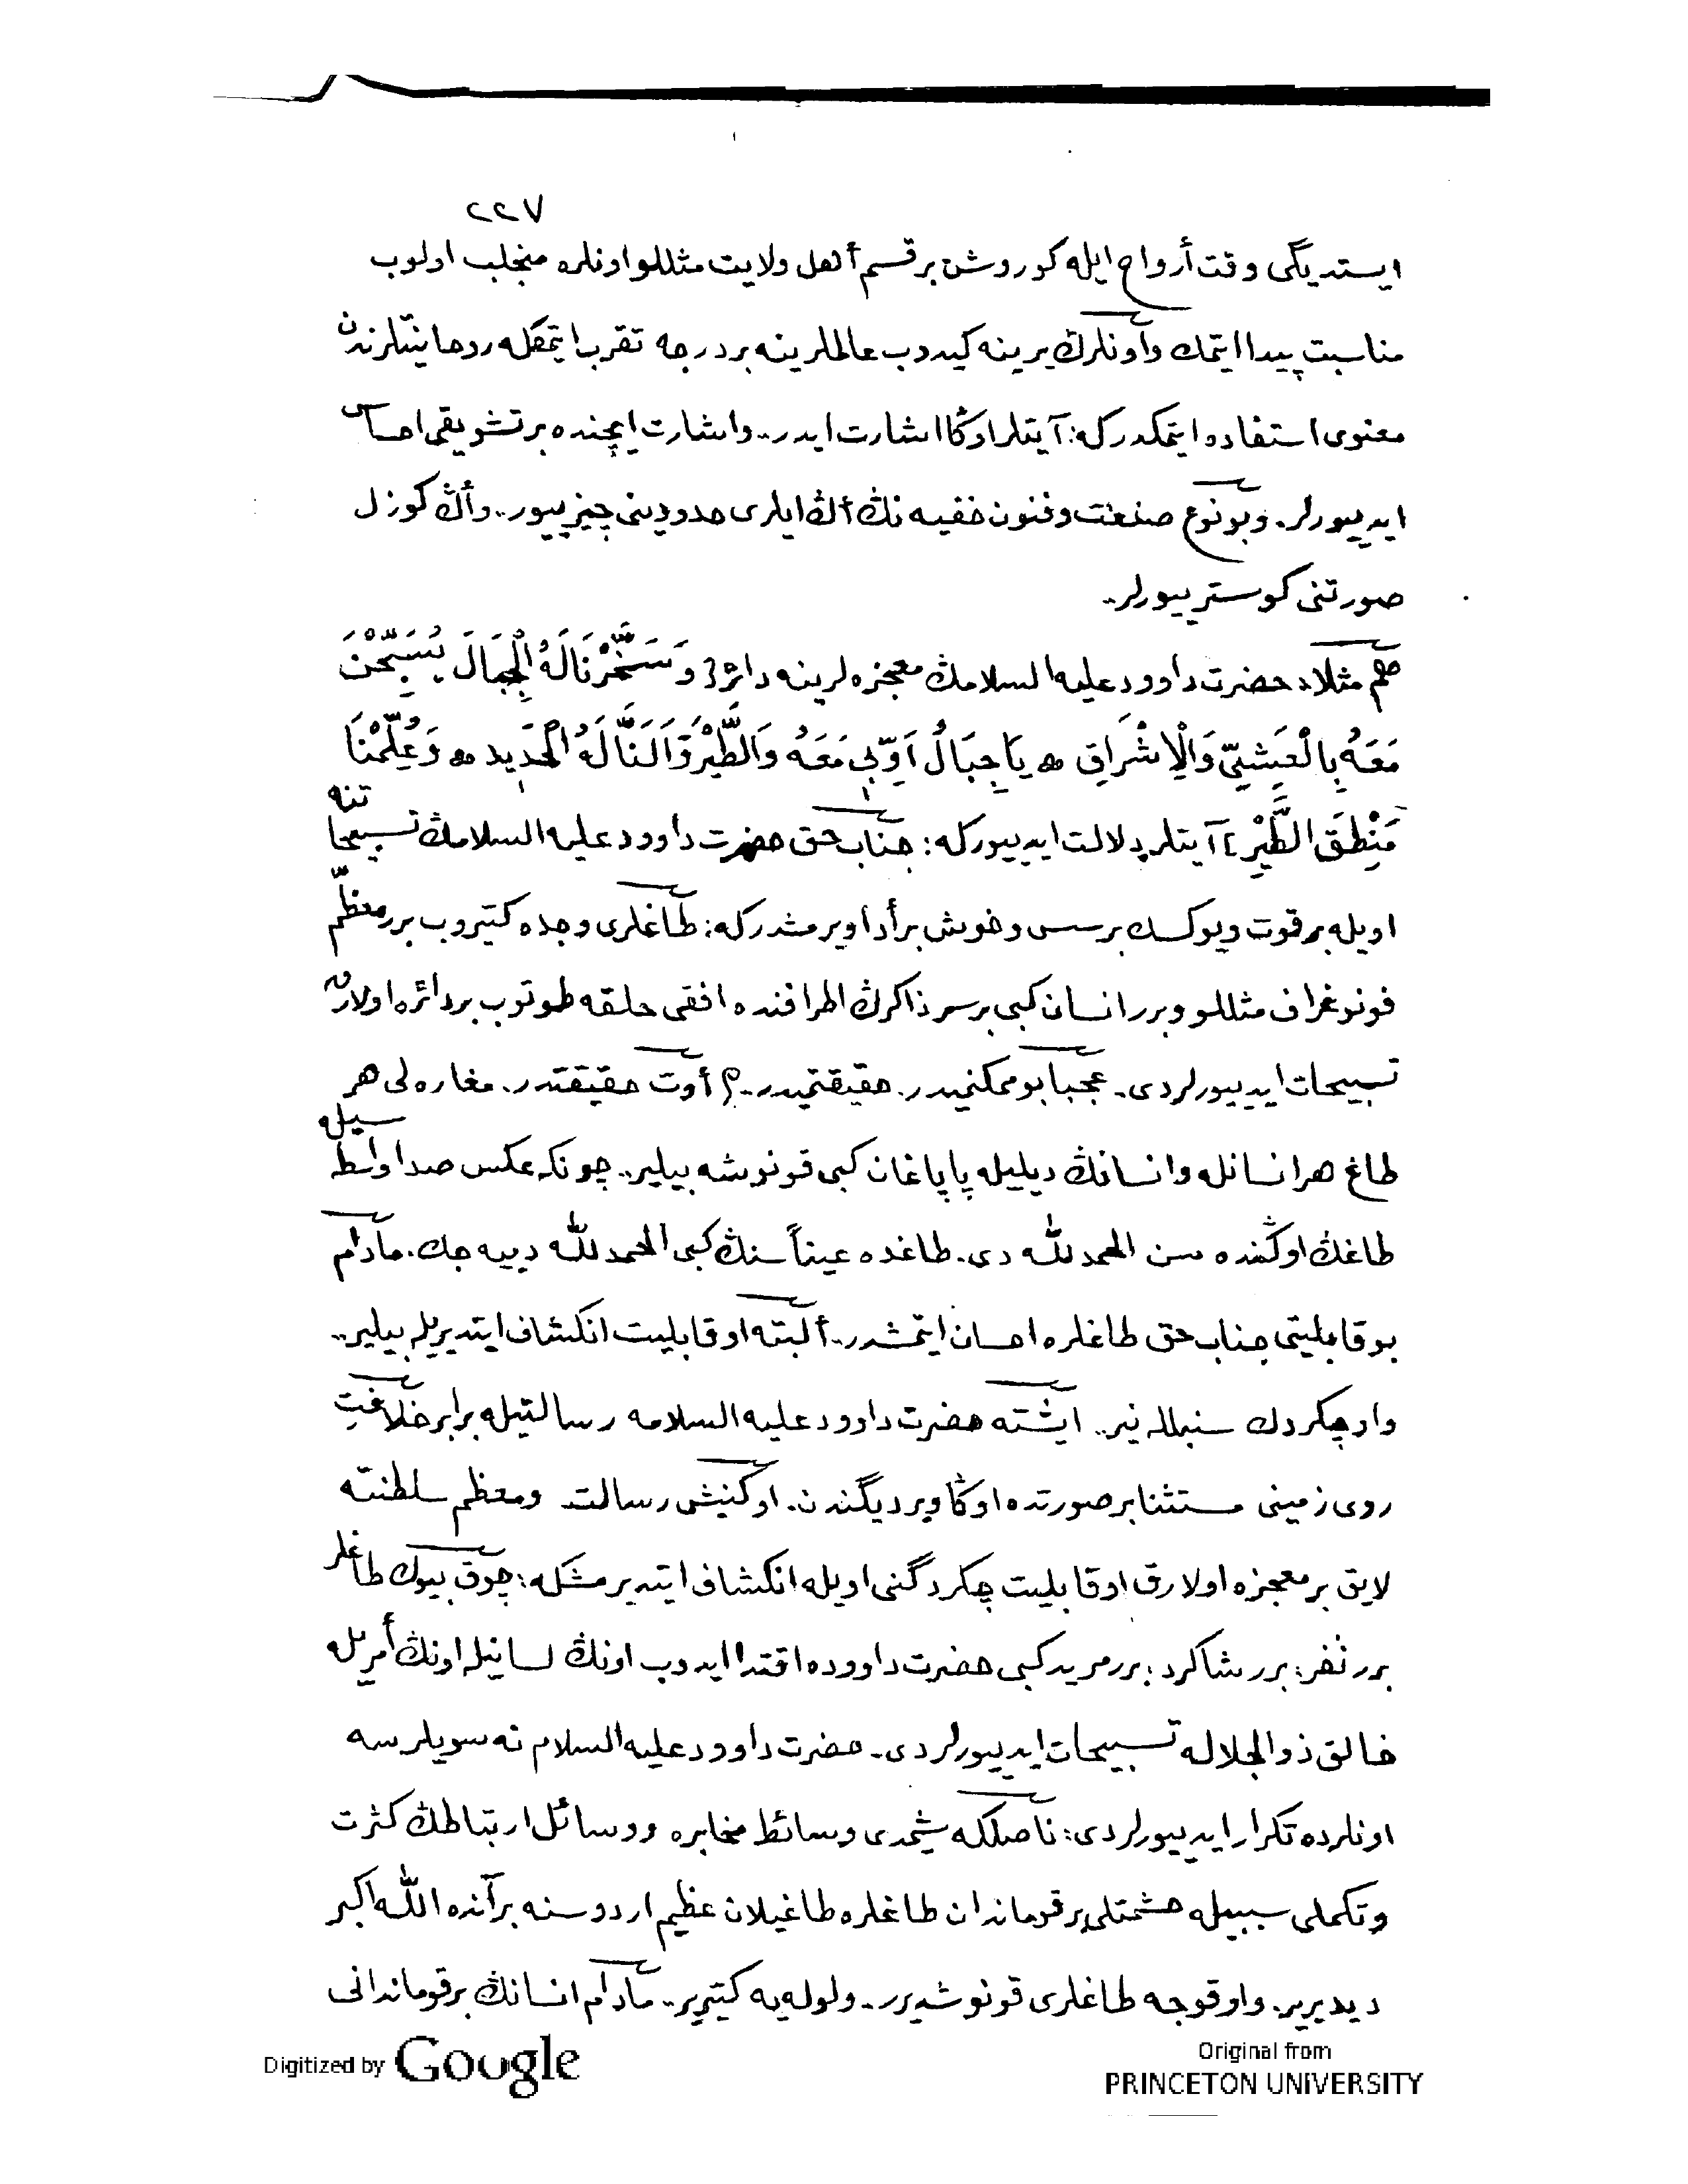 ٢٢٧
ایستدیگی وقت أرواح ایله کوروشن بر قسم أهل ولایت مثللو اونلره منجلب اولوب
مناسبت پیدا ایتمك وأونلرڭ یرینه کیدوب عالملرینه بر درجه تقرب ایتمکله روحانیتلرندن
معنوی استفاده ایتمکدرکه: آیتلر اوڭا اشارت ایدر.. واشارت ایچنده بر تشویقی احساس
ایدییورلر. وبو نوع صنعت وفنون خفیه نڭ أڭ ایلری حدودینی چیزییور.. وأڭ کوزل
صورتنی کوسترییورلر..
هم مثلا: حضرت داوود علیه السلامڭ معجزه لرینه دائر ﴿ وَسَخَّرْنَا لَهُ الْجِبَالَ يُسَبِّحْنَ
مَعَهُ بِالْعَشِيِّ وَالْاِشْرَاقِ ۞ يَا جِبَالُ اَوِّبِي مَعَهُ وَالطَّيْرَ وَاَلَنَّا لَهُ الْحَدِيدَ ۞ وَعُلِّمْنَا
مَنْطِقَ الطَّيْرِ ﴾ آیتلر دلالت ایدییورکه: جناب حق حضرت داوود علیه السلامڭ تسبیحاتنه
اویله بر قوت ویوکسك بر سس وخوش بر أدا ویرمشدرکه: طاغلری وجده کتیروب برر معظّم
فونوغراف مثللو وبرر انسان کبی بر سرذاکرڭ اطرافنده افقی حلقه طوتوب بر دائره اولارق
تسبیحات ایدییورلردی. عجبا بو ممکنمیدر. حقیقتمیدر.؟ أوت حقیقتدر. مغاره لی هر
طاغ هر انسانله وانسانڭ دیلیله پاپاغان کبی قونوشه بیلیر.. چونکه عکس صدا واسطه سیله
طاغڭ اوڭنده سن الحمد لله دی. طاغده عیناً سنڭ کبی الحمد لله دییه جك. مادام
بو قابلیتی جناب حق طاغلره احسان ایتمشدر.. ألبته او قابلیت انکشاف ایتدیریله بیلیر..
واو چکردك سنبللنیر.. ایشته حضرت داوود علیه السلامه رسالتیله برابر خلافت
روی زمینی مستثنا بر صورتده اوڭا ویردیگندن. او کنیش رسالت ومعظم سلطنته
لایق بر معجزه اولارق او قابلیت چکردگنی اویله انکشاف ایتدیرمشکه: چوق بیوك طاغلر
برر نفر: برر شاکرد: برر مرید کبی حضرت داووده اقتدا ایدوب اونڭ لسانیله اونڭ أمریله
خالق ذوالجلاله تسبیحات ایدییورلردی. حضرت داوود علیه السلام نه سویلرسه
اونلرده تکرار ایدییورلردی: ناصلکه شیمدی وسائط مخابره ووسائل ارتباطڭ کثرت
وتکملی سببیله حشمتلی بر قوماندان طاغلره طاغیلان عظیم اردوسنه بر آنده الله اکبر
دیدیریر. واو قوجه طاغلری قونوشدیرر.. ولوله یه کتیریر.. مادام انسانڭ بر قوماندانی
Digitized by Google
Original from
PRINCETON UNIVERSITY